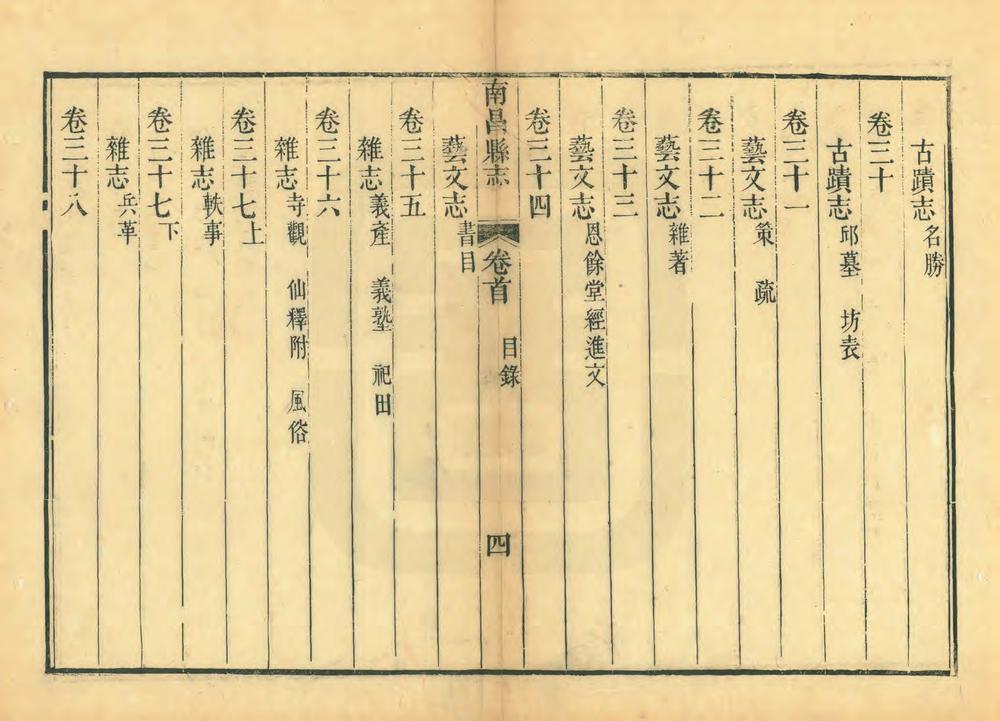 古蹟志 名勝
卷三十
古蹟志 邱墓 坊表
卷三十一
藝文志 策 疏
卷三十二
藝文志 雜著
卷三十三
藝文志 恩餘堂經進文
卷三十四
南昌縣志 卷首 目錄 四
藝文志 書目
卷三十五
雜志 義產 義塾 祀田
卷三十六
雜志 寺觀 仙釋附 風俗
卷三十七上
雜志 軼事
卷三十七下
雜志 兵革
卷三十八